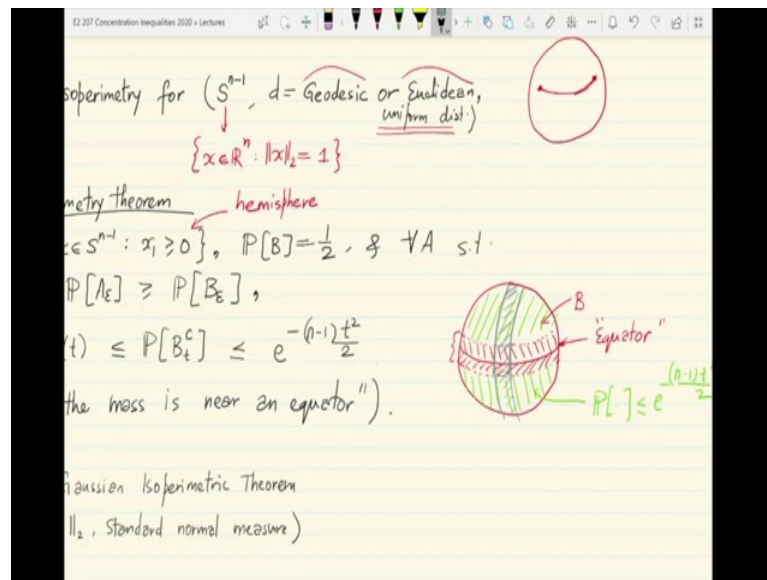 E2 207 Concentration Inequalities 2020 • Lectures
soperimetry for (S^{n-1}, d = Geodesic or Euclidean,
uniform dist.)
{x ∈ R^n : ||x||_2 = 1}
metry theorem
hemisphere
∈ S^{n-1} : x_1 ≥ 0}, P[B] = 1/2, & ∀A s.t.
P[A_ε] ≥ P[B_ε],
B
"Equator"
(t) ≤ P[B_t^c] ≤ e^{-(n-1)t^2/2}
P[.] ≤ e^{-(n-1)t^2/2}
the mass is near an equator").
aussian Isoperimetric Theorem
||_2, Standard normal measure)